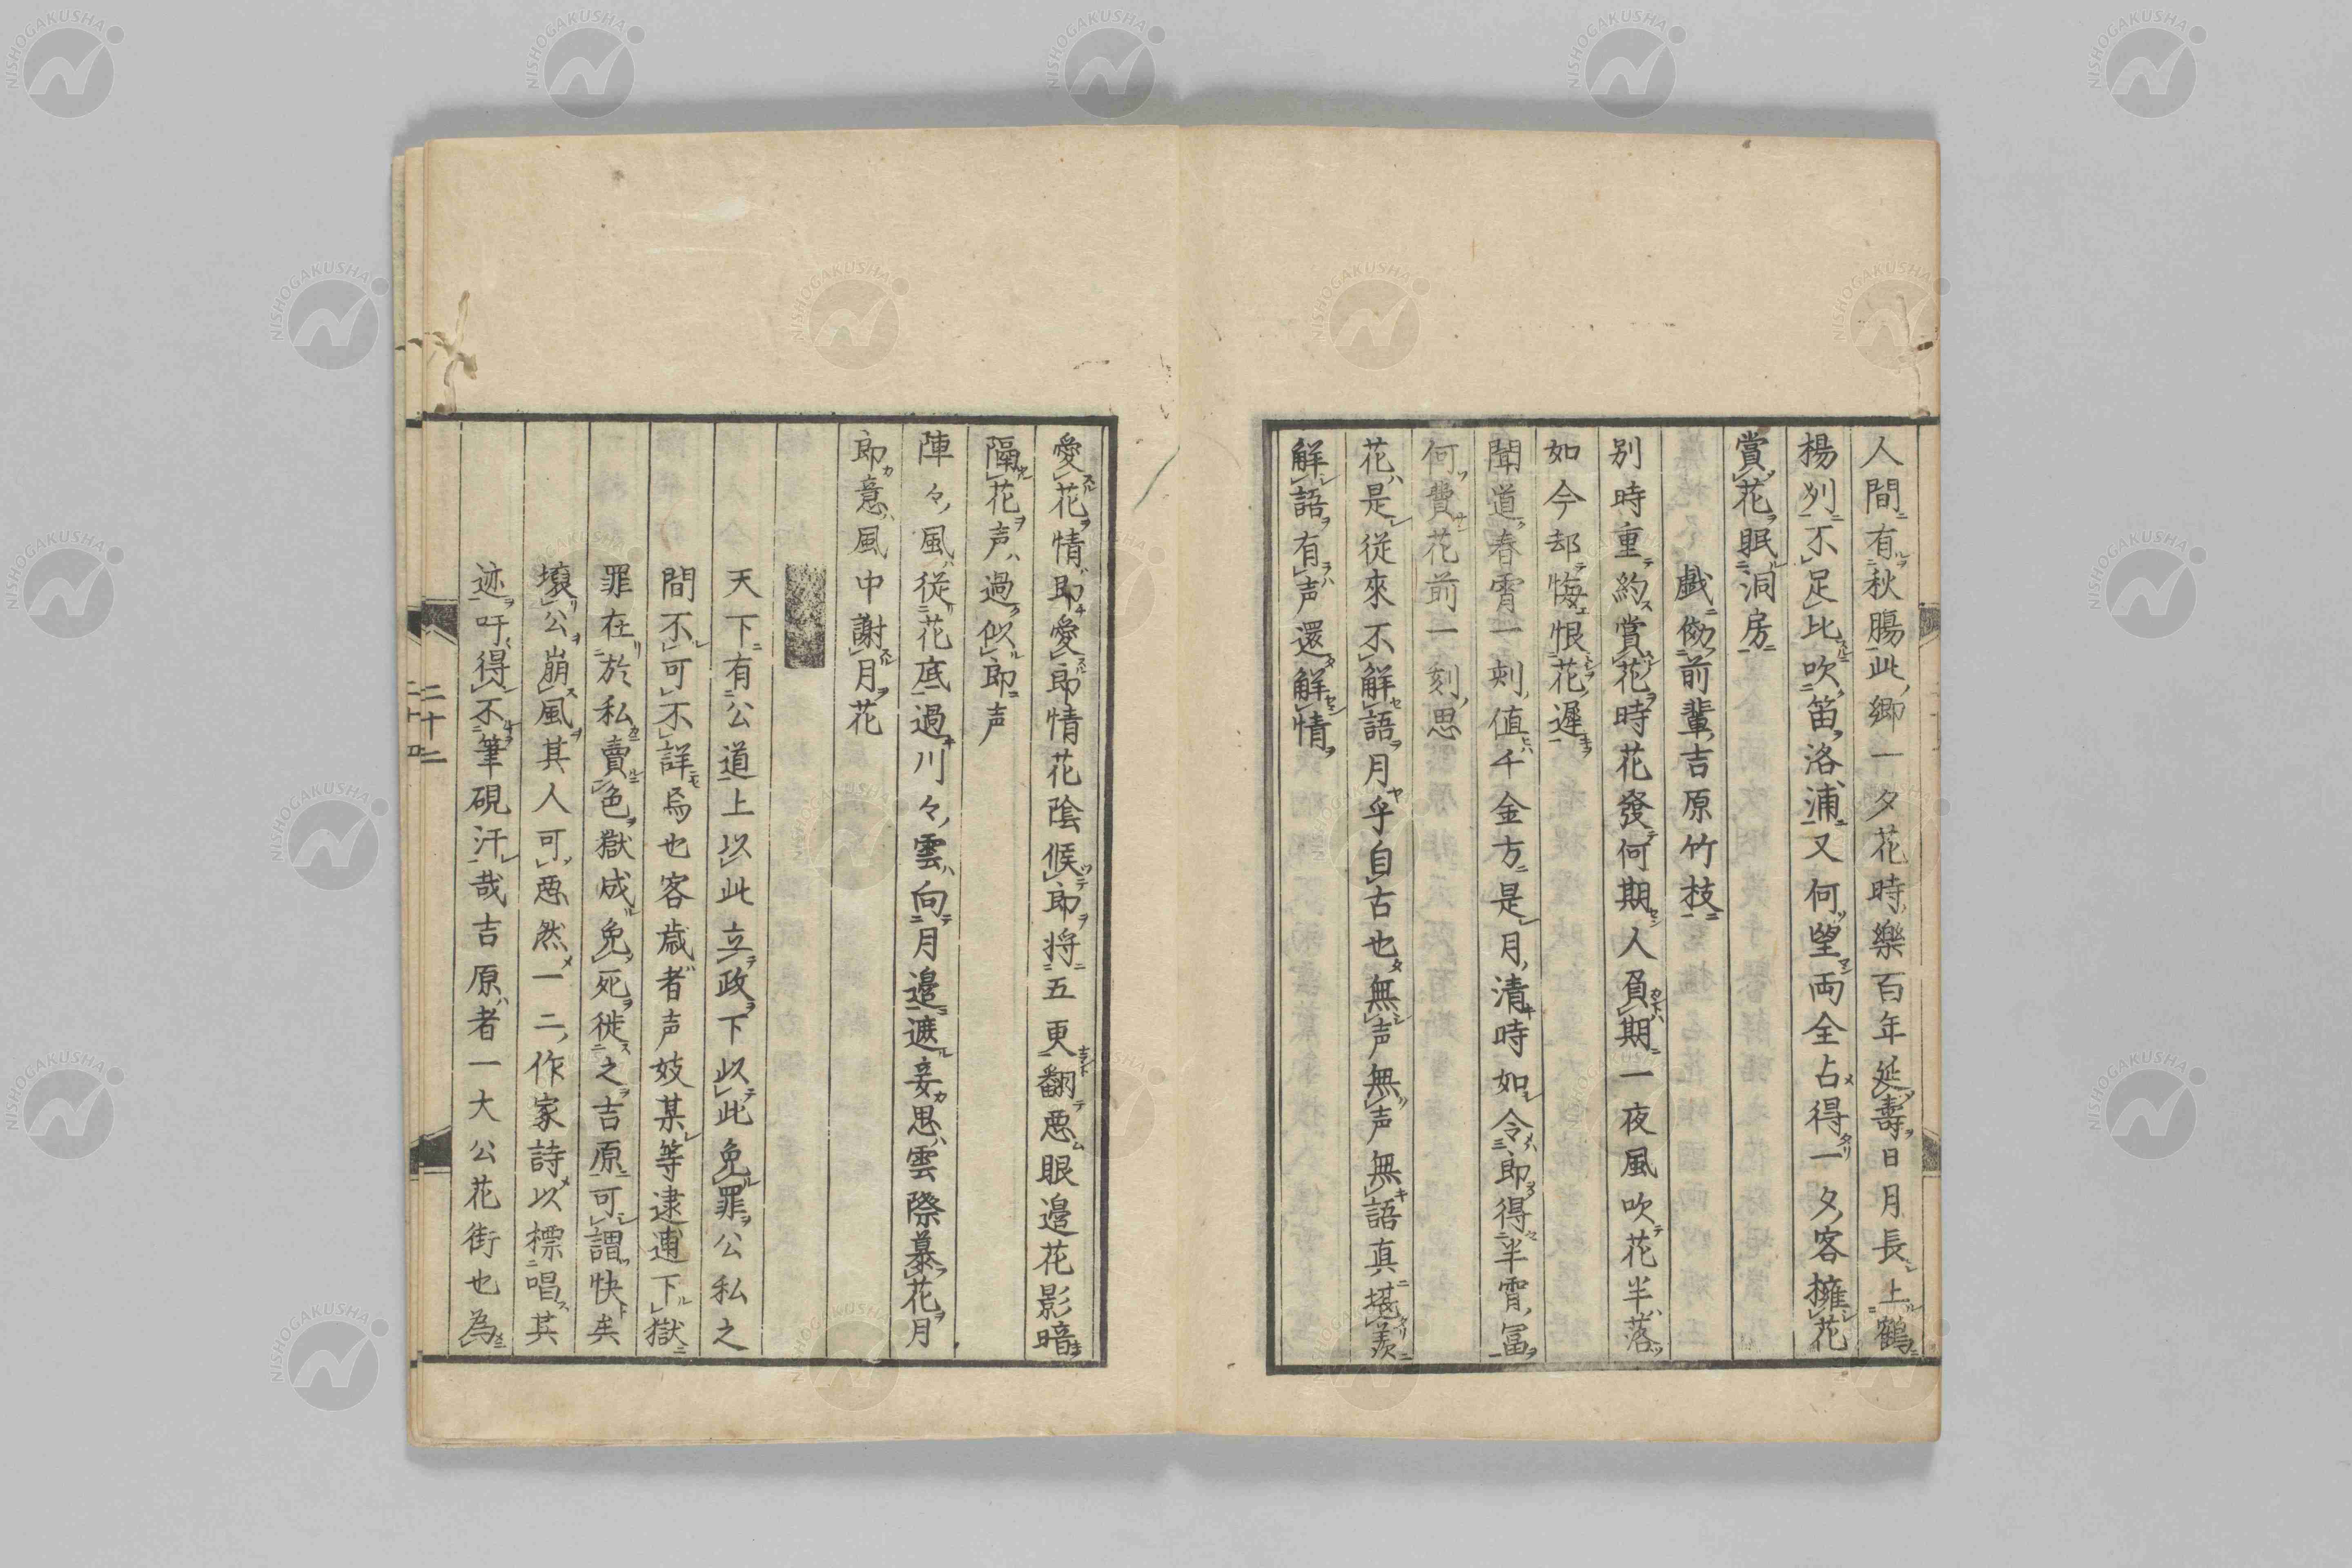 人間有秋腸此郷一夕花時樂百年延壽日月長上鶴
楊列不足比吹笛洛浦又何望両全占得一夕客擁花
賞花眠洞房
戯倣前輩吉原竹枝
别時重約賞花時花發何期人負期一夜風吹花半落
如今却悔恨花遲
聞道春霄一刺値千金方是月清時如令即得半霄冨
何費花前一刻思
花是従來不解語月乎自古也無声無声無語真堪羨
解語有声還解情
愛花情即愛郎情花陰候郎将五更翻悪眼邉花影暗
隔花声過似郎声
陣々風従花底過川々雲向月邉遮妾思雲際暴花月
郎意風中謝月花
天下有公道上以此立政下以此免罪公私之
間不可不詳焉也客歳者声妓某等逮連下獄
罪在於私賣色獄成免死徙之吉原可謂快矣
壞公崩風其人可悪然一二作家詩以標唱其
迹吁得不筆硯汗哉吉原者一大公花街也為
二十二
二十四
NISHOGAKUSHA